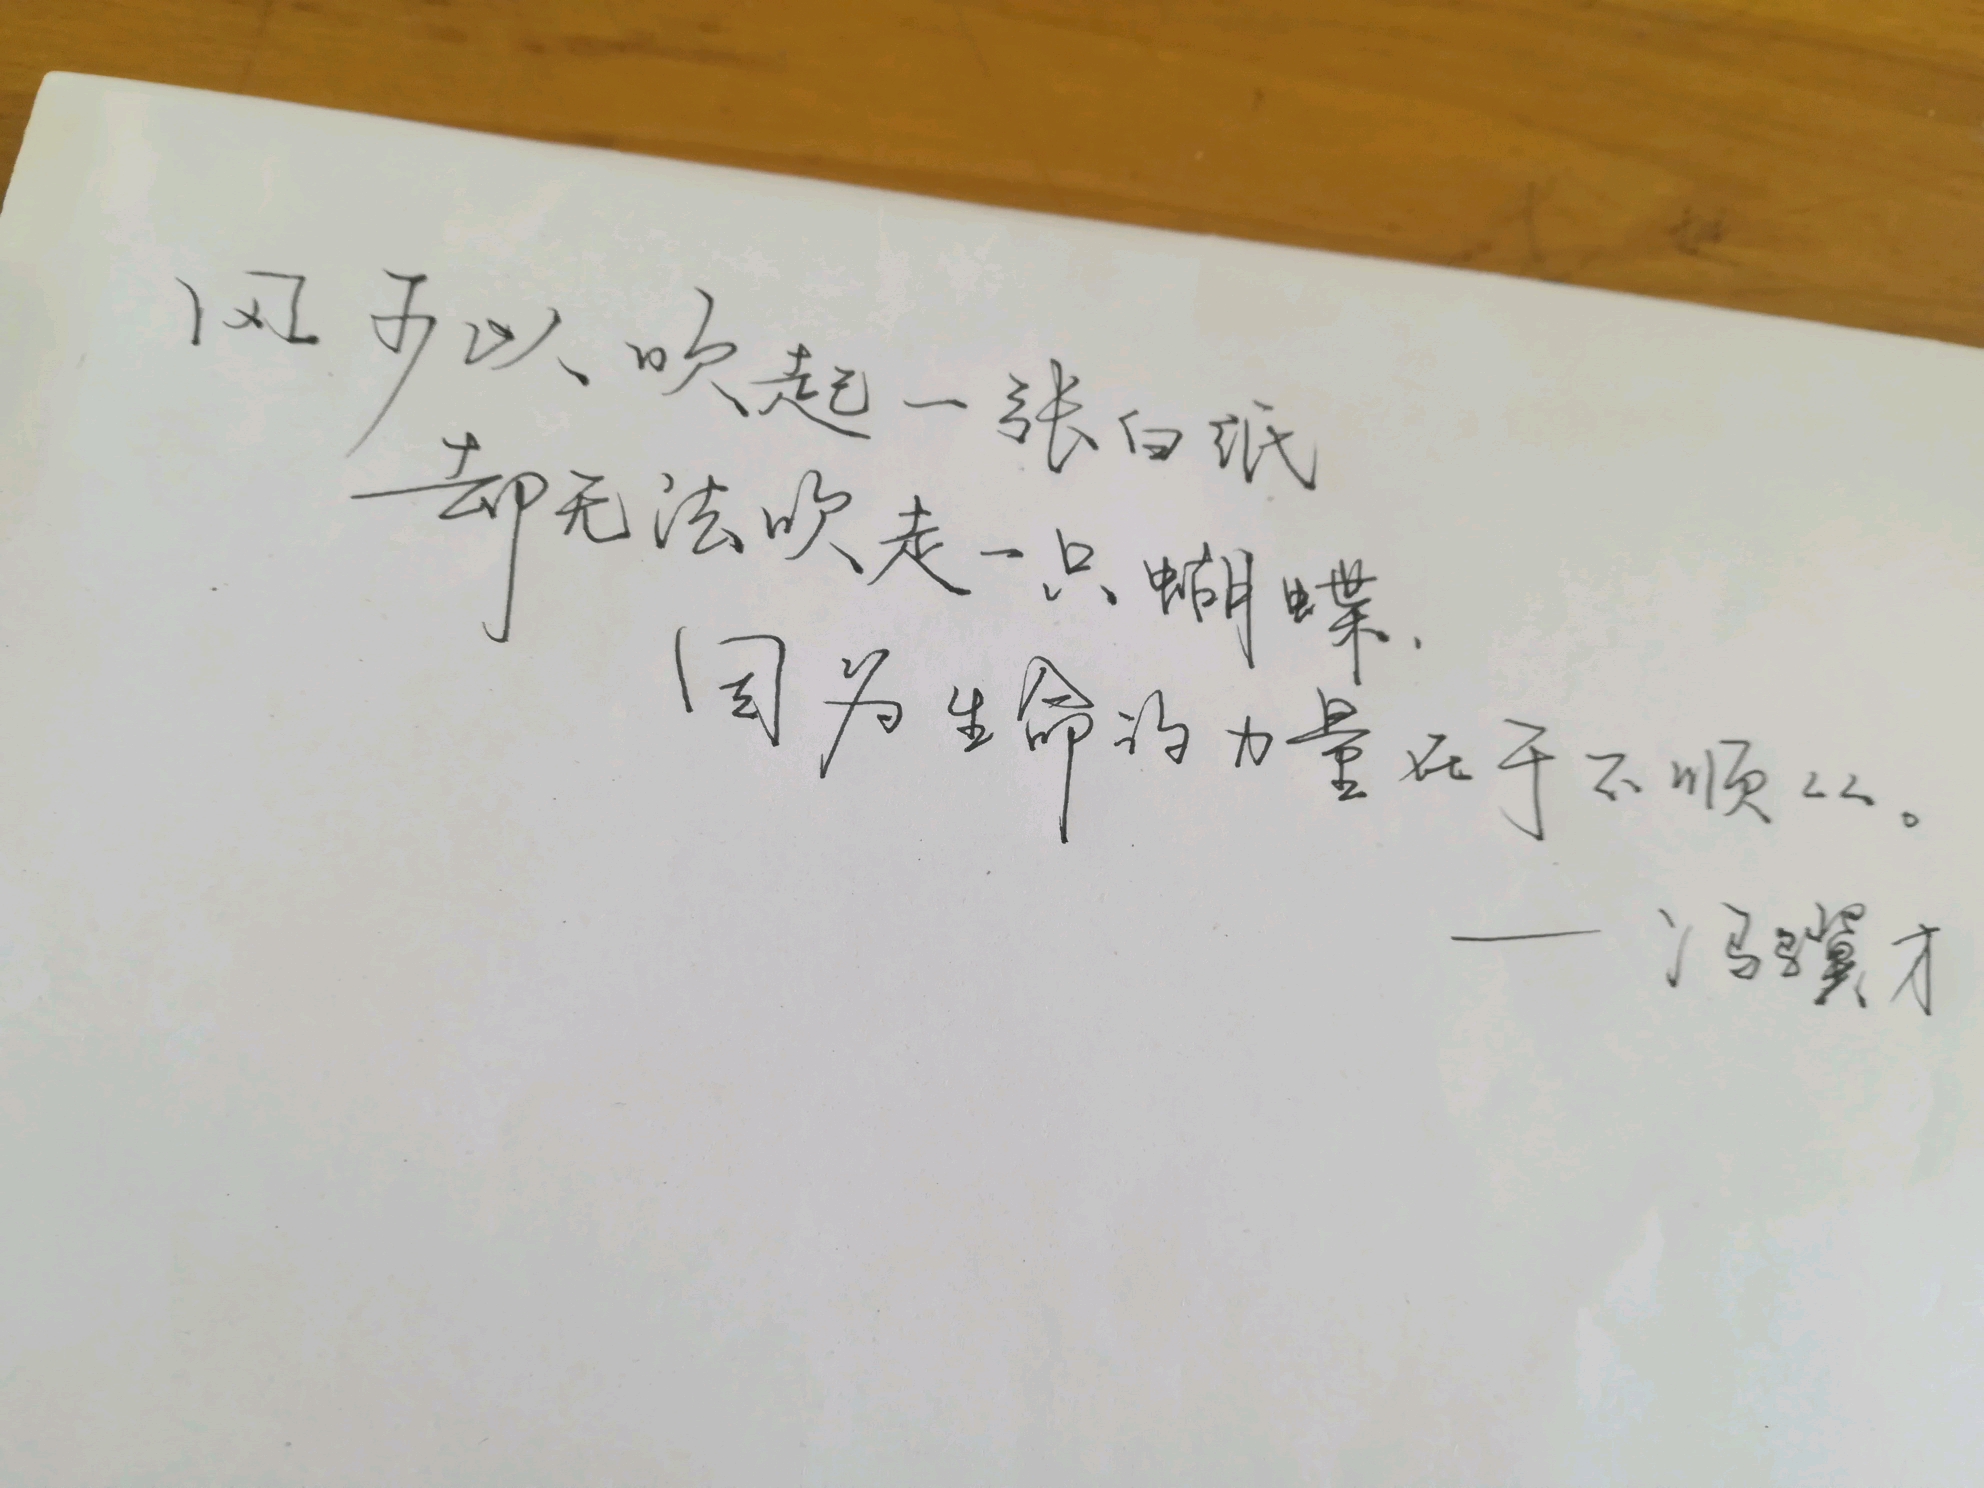 风可以吹起一张白纸
却无法吹走一只蝴蝶.
因为生命的力量在于不顺从。
——冯骥才